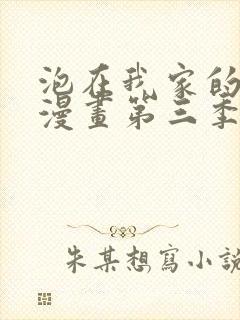 泡在我家的
漫畫第三季
朱某想寫小說